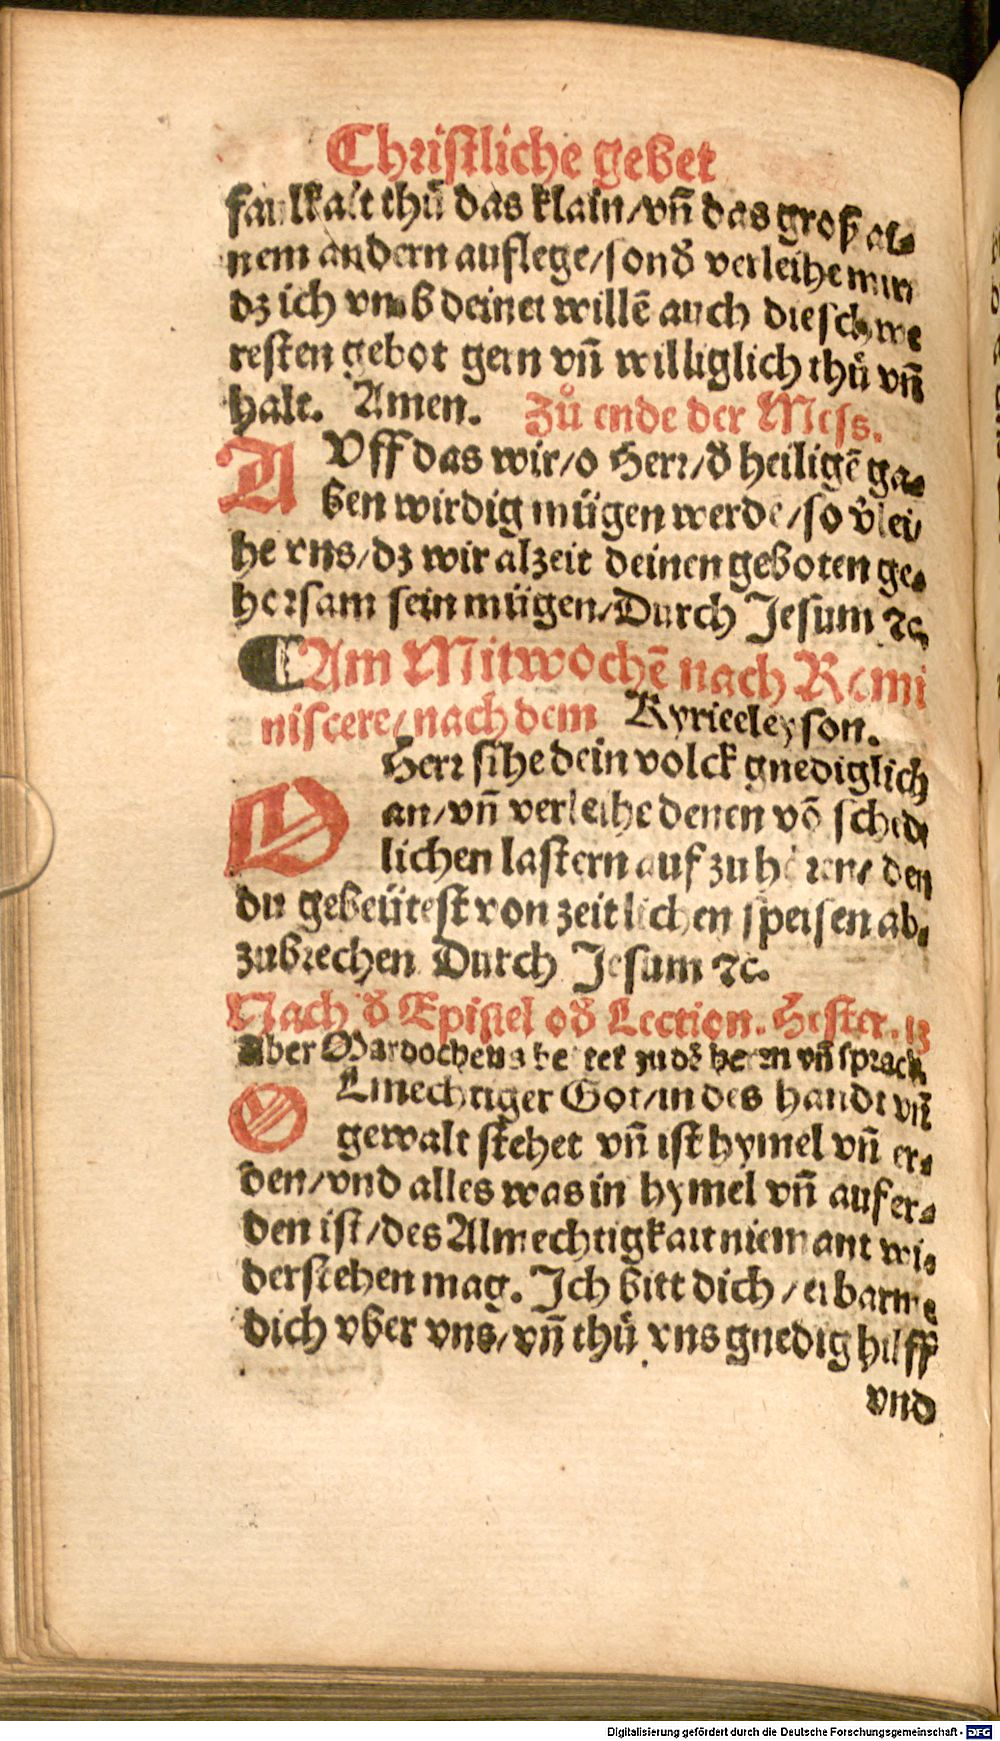 Christliche gebet
faulkait thů das klain/vn̄ das groß ai⸗
nem andern auflege/sond̕ verleihe mir
dz ich vmb deinet willē auch die schwe
resten gebot gern vn̄ williglich thů vn̄
halt. Amen. Zů ende der Mess.
AVff das wir/o Herr/d̕ heiligē ga⸗
ben wirdig mügen werde/so v̕lei⸗
he vns/dz wir alzeit deinen geboten ge⸗
horsam sein mügen/Durch Jesum ⁊c.
¶Am Mitwochē nach Remi
niscere/nach dem Kyrieeleyson.
O Herr sihe dein volck gnediglich
an/vn̄ verleihe denen vō schedt
lichen lastern auf zu hören/ den
du gebeütest von zeitlichen speisen ab⸗
zubrechen Durch Jesum ⁊c.
Nach d̕ Epistel od̕ Lection. Hester. 13
Aber Mardocheus bettet zu dē herrn vn̄ sprach.
O Almechtiger Got/in des handt vn̄
gewalt stehet vn̄ ist hymel vn̄ er⸗
den/vnd alles was in hymel vn̄ auf er⸗
den ist/des Almechtigkait niemant wi⸗
derstehen mag. Ich bitt dich/erbarme
dich vber vns/vn̄ thů vns gnedig hilff
vnd
Digitalisierung gefördert durch die Deutsche Forschungsgemeinschaft - DFG